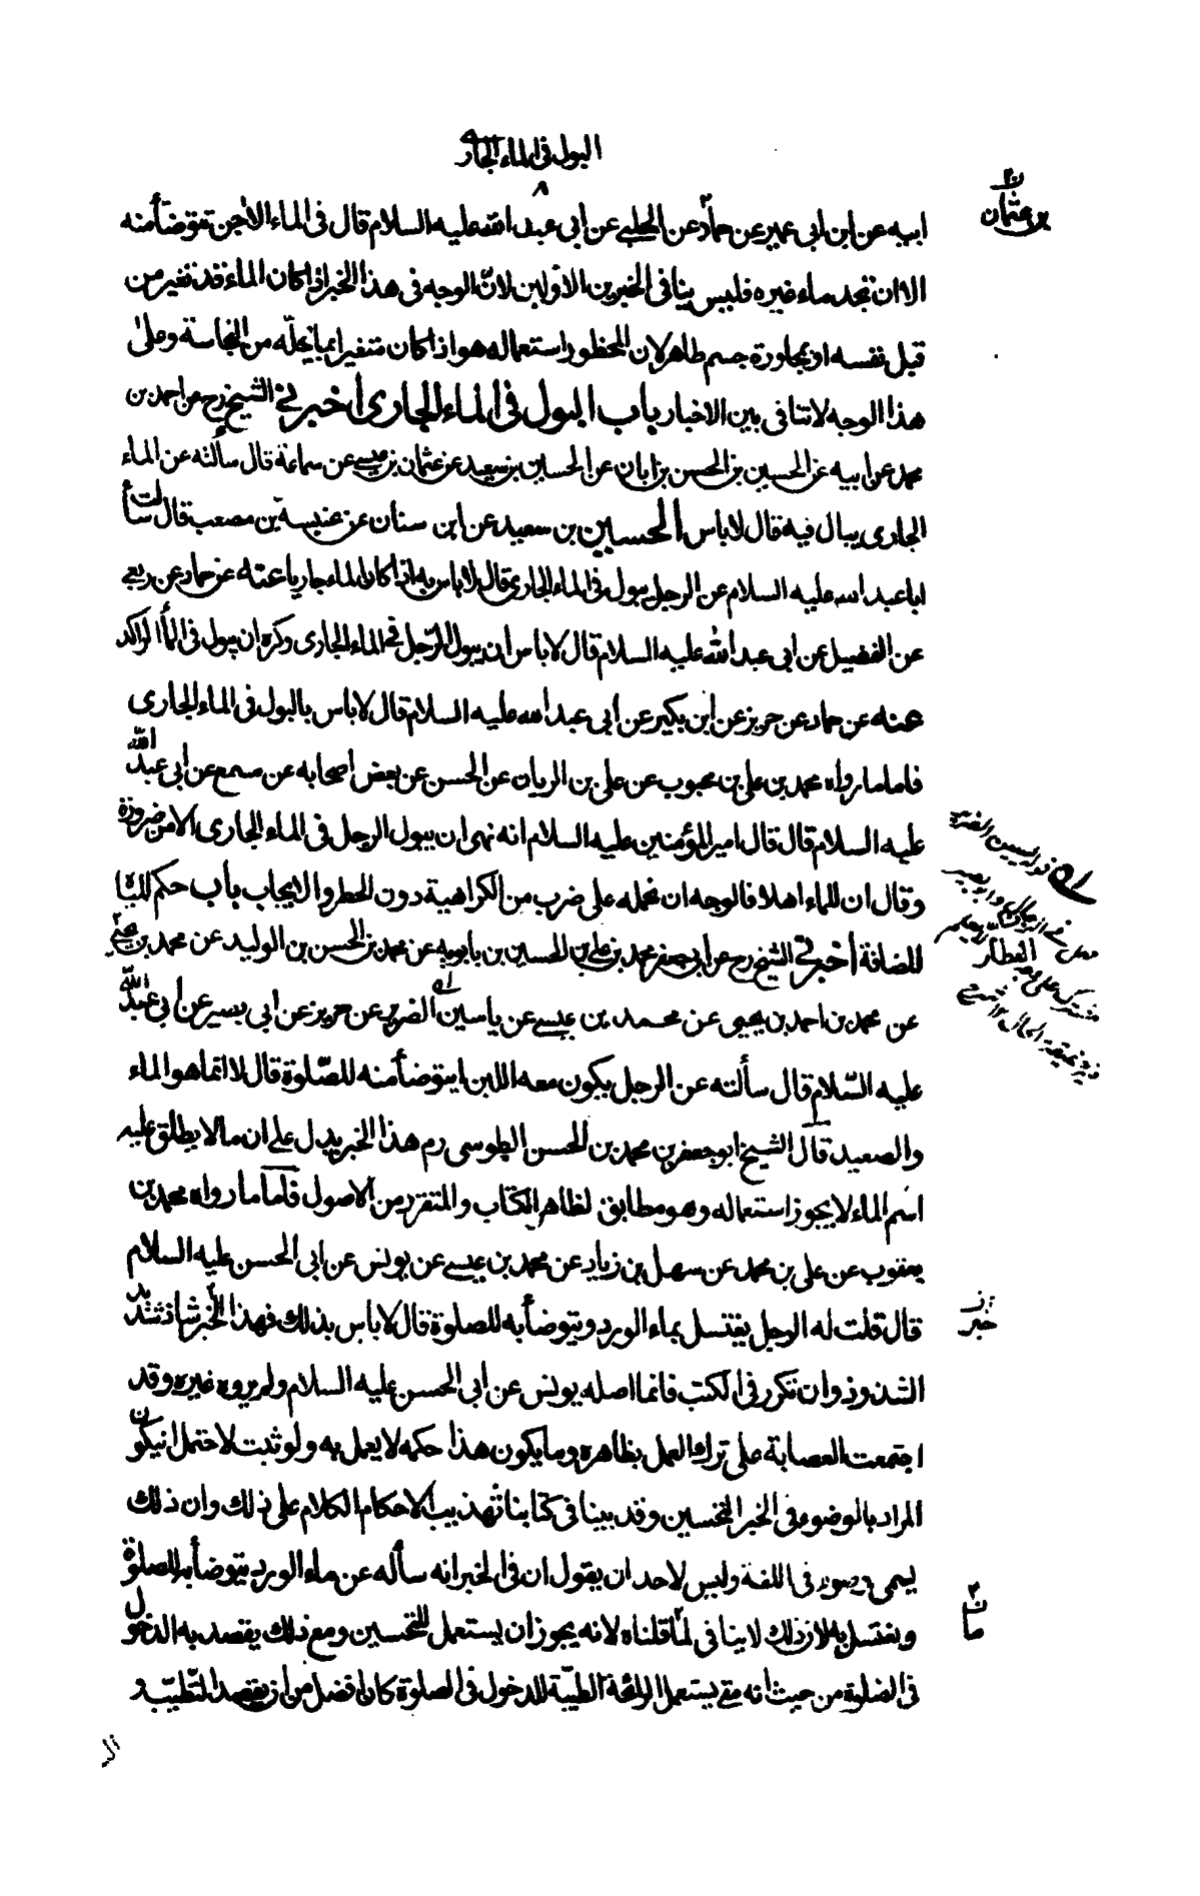 البول في الماء الجاري
٨
بن عثمان
ابيه عن ابن ابي عمير عن حماد عن الحلبي عن ابي عبد الله عليه السلام قال في الماء الآجن تتوضأ منه
الا ان تجد ماء غيره فليس ينافي الخبرين الاولين لان الوجه في هذا الخبر اذا كان الماء قد تغير من
قبل نفسه او بمجاورة جسم طاهر لان المحظور استعماله هو اذا كان متغيرا بما يحله من النجاسة وعلى
هذا الوجه لا تنافي بين الاخبار باب البول في الماء الجاري أخبرني الشيخ رح عن احمد بن
محمد عن ابيه عن الحسين بن الحسن بن ابان عن الحسين بن سعيد عن عثمان بن عيسى عن سماعة قال سألته عن الماء
الجاري يبال فيه قال لا باس الحسين بن سعيد عن ابن سنان عن عنبسة بن مصعب قال سألت
ابا عبد الله عليه السلام عن الرجل يبول في الماء الجاري قال لا باس به اذا كان الماء جاريا عنه عن حماد عن ربعي
عن الفضيل عن ابي عبد الله عليه السلام قال لا باس ان يبول الرجل في الماء الجاري وكره ان يبول في الماء الراكد
عنه عن حماد عن حريز عن ابن بكير عن ابي عبد الله عليه السلام قال لا باس بالبول في الماء الجاري
فاما ما رواه محمد بن علي بن محبوب عن علي بن الريان عن الحسن عن بعض اصحابه عن مسمع عن ابي عبد الله
عليه السلام قال قال امير المؤمنين عليه السلام انه نهى ان يبول الرجل في الماء الجاري الا من ضرورة
وقال ان للماء اهلا فالوجه ان نحمله على ضرب من الكراهية دون الحظر والايجاب باب حكم المياه
المضافة أخبرني الشيخ رح عن ابي جعفر محمد بن علي بن الحسين بن بابويه عن محمد بن الحسن بن الوليد عن محمد بن يحيى
العطار
عن محمد بن احمد بن يحيى عن محمد بن عيسى عن ياسين الضرير عن حريز عن ابي بصير عن ابي عبد الله
عليه السلام قال سألته عن الرجل يكون معه اللبن ايتوضأ منه للصلوة قال لا انما هو الماء
والصعيد قال الشيخ ابو جعفر بن محمد بن الحسن الطوسي رم هذا الخبر يدل على ان ما لا يطلق عليه
اسم الماء لا يجوز استعماله وهو مطابق لظاهر الكتاب والمتقرر من الاصول فاما ما رواه محمد بن
يعقوب عن علي بن محمد عن سهل بن زياد عن محمد بن عيسى عن يونس عن ابي الحسن عليه السلام
قال قلت له الرجل يغتسل بماء الورد ويتوضأ به للصلوة قال لا باس بذلك فهذا الخبر شاذ شديد
خبر
الشذوذ وان تكرر في الكتب فانما اصله يونس عن ابي الحسن عليه السلام ولم يروه غيره وقد
اجتمعت العصابة على ترك العمل بظاهره وما يكون هذا حكمه لا يعمل به ولو ثبت لاحتمل ان يكون
المراد بالوضوء في الخبر التحسين وقد بينا في كتابنا تهذيب الاحكام الكلام على ذلك وان ذلك
يسمى وضوء في اللغة وليس لاحد ان يقول ان في الخبر انه سأله عن ماء الورد يتوضأ به للصلوة
ويغتسل به لان ذلك لا ينافي لما قلناه لانه يجوز ان يستعمل للتحسين ومع ذلك يقصد به الدخول
ما
في الصلوة من حيث انه متى يستعمل الرائحة الطيبة للدخول في الصلوة كان افضل من ان يقصد التطيب و